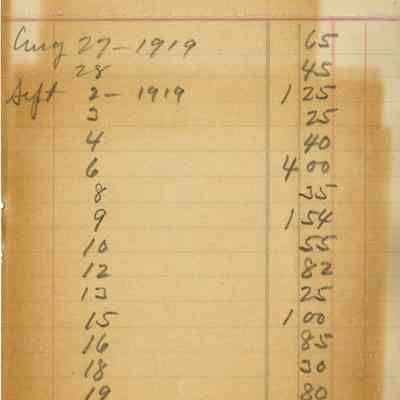 Aug 27-1919 65
28 45
Sept 2- 1919 1 25
3 25
4 40
6 4 00
8 35
9 1 54
10 55
12 82
13 25
15 1 00
16 85
18 30
19 80